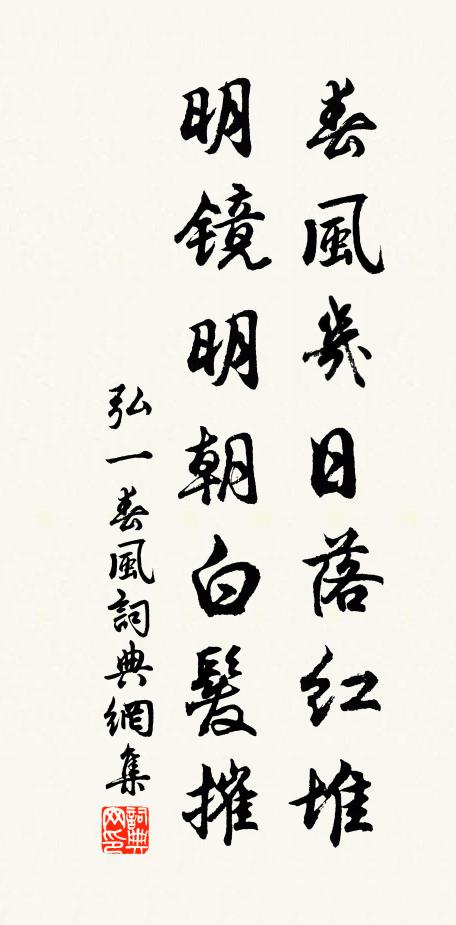 春風幾日落紅堆
明鏡明朝白髮摧
弘一春風詞典網集
詞典網印